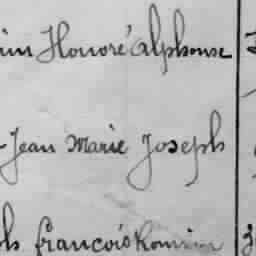 Honoré Alphonse
-Jean Marie Joseph
francois Romain